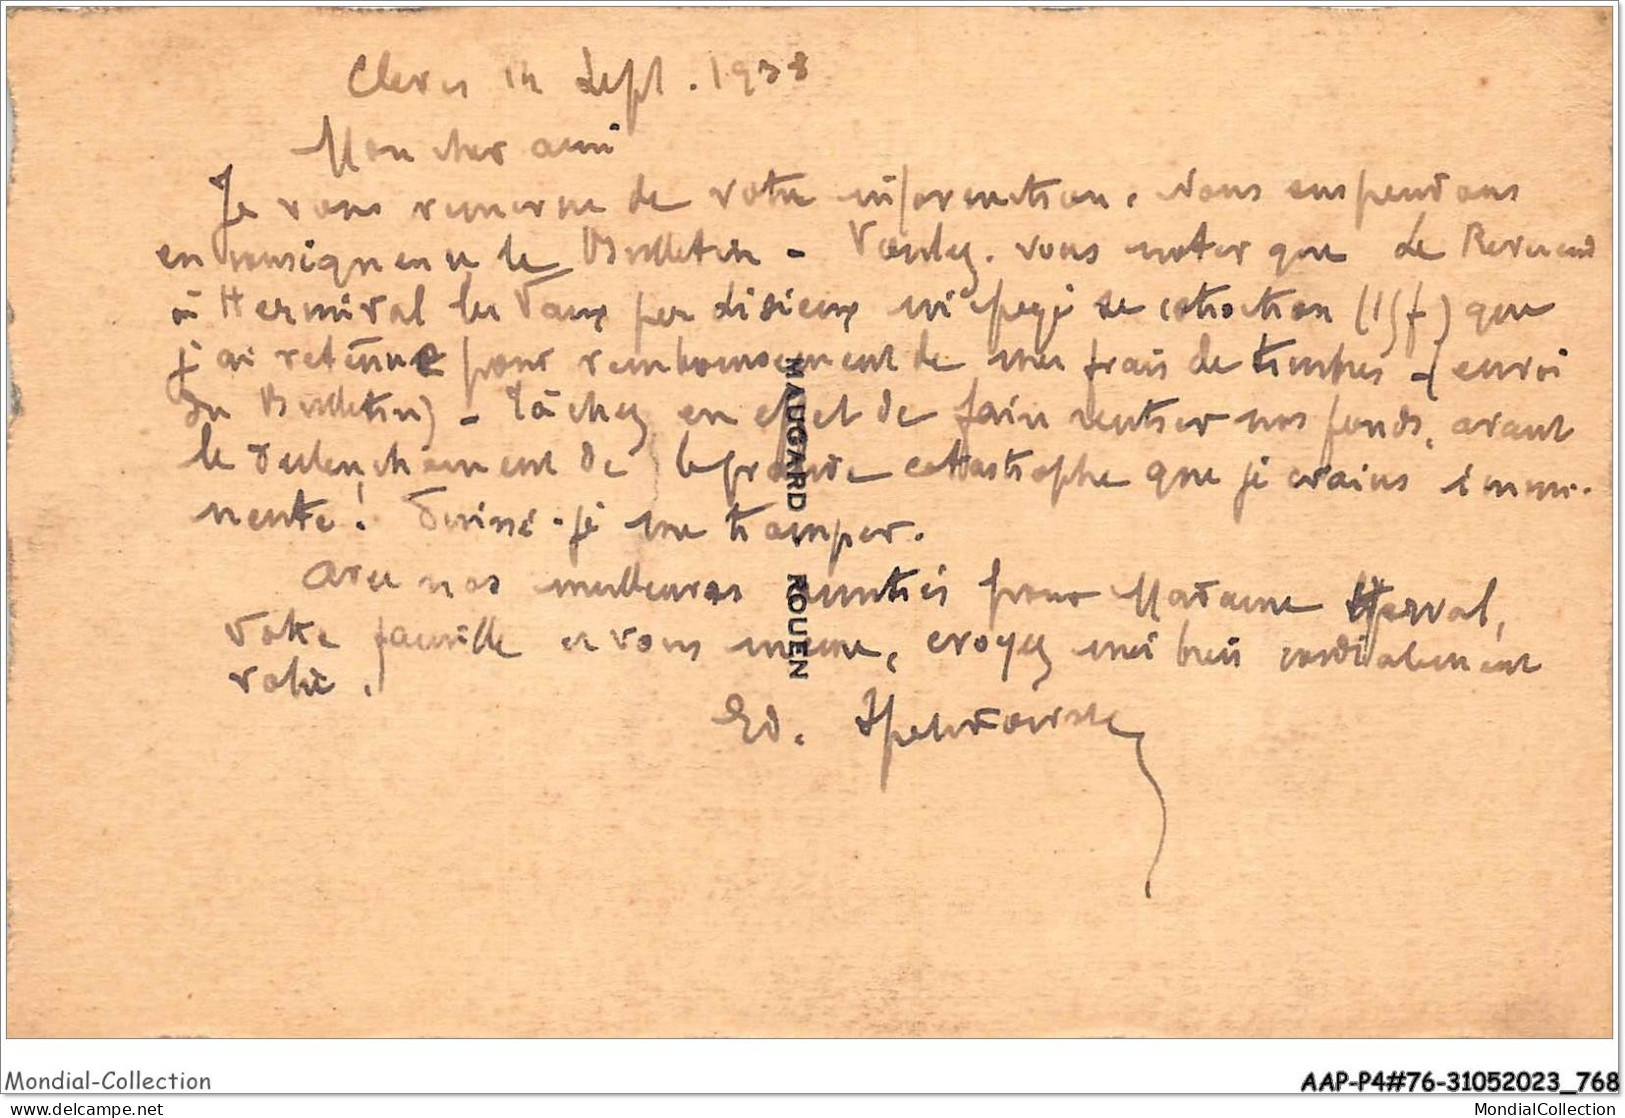 Clères 14 Sept. 1938
Mon cher ami
Je vous remercie de votre information. Nous suspendons
en conséquence le Bulletin - Voulez-vous noter que Le Reverend
à Hermival les Vaux par Lisieux m'a payé sa cotisation (15f) que
j'ai retenue pour remboursement de mes frais de timbres - (envoi
du Bulletin) - Tâchez en effet de faire rentrer nos fonds, avant
le déclenchement de la grande catastrophe que je crains immi-
nente! Puissé-je me tromper.
Avec nos meilleures amitiés pour Madame Herval,
votre famille et vous même, croyez moi bien cordialement
votre.
Ed.
MAUGARD, ROUEN
Mondial-Collection
AAP-P4#76-31052023_768
delcampe.net
MondialCollection